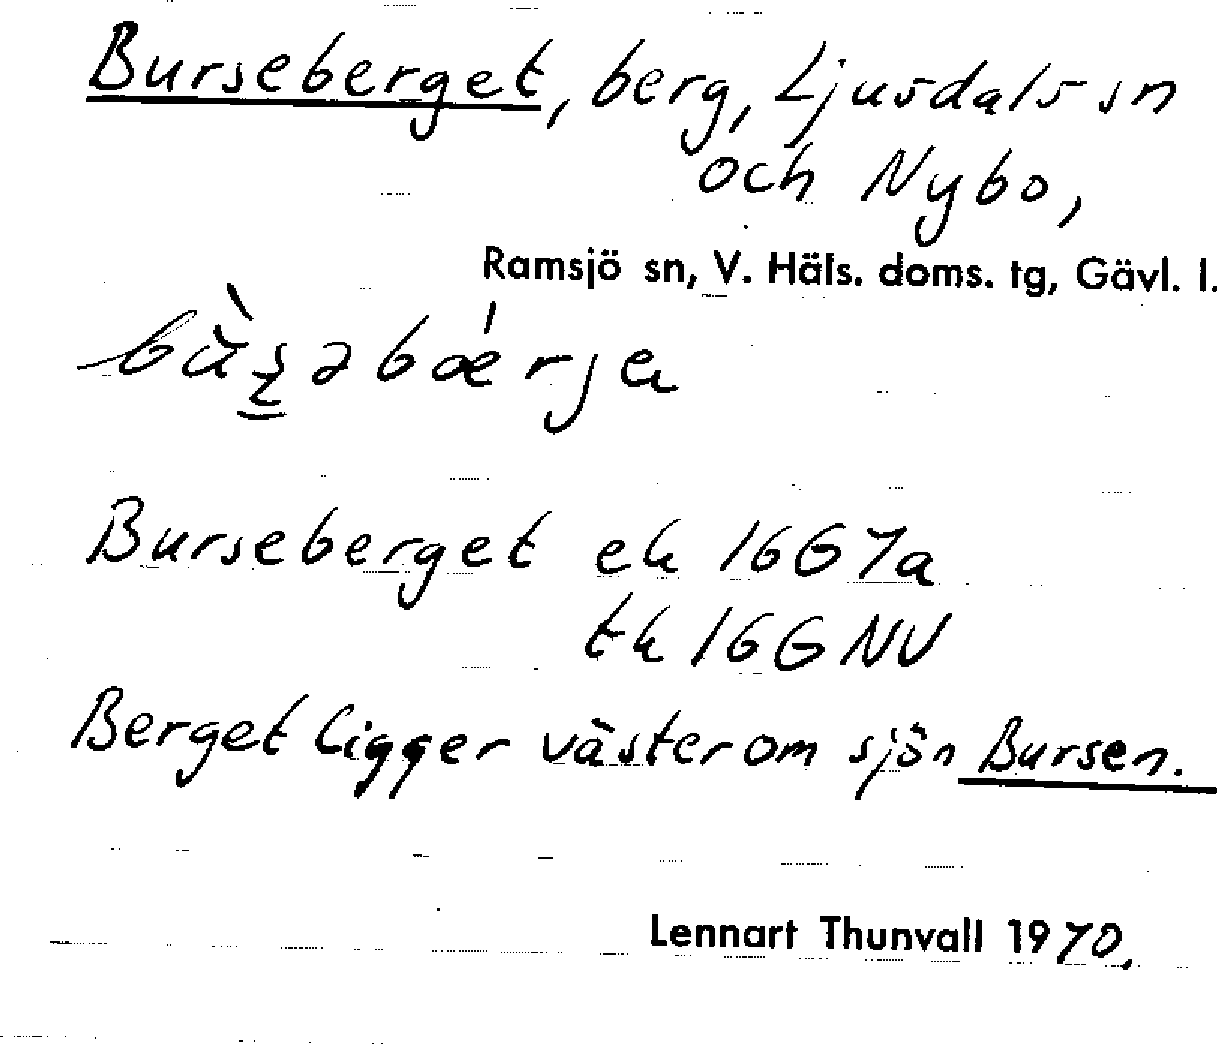 Burseberget, berg, Ljusdals sn
och Nybo,
Ramsjö sn, V. Häls. doms. tg, Gävl. l.
Burseberget ek 16G7a
tk 16GNV
Berget ligger väster om sjön Bursen.
Lennart Thunvall 1970.